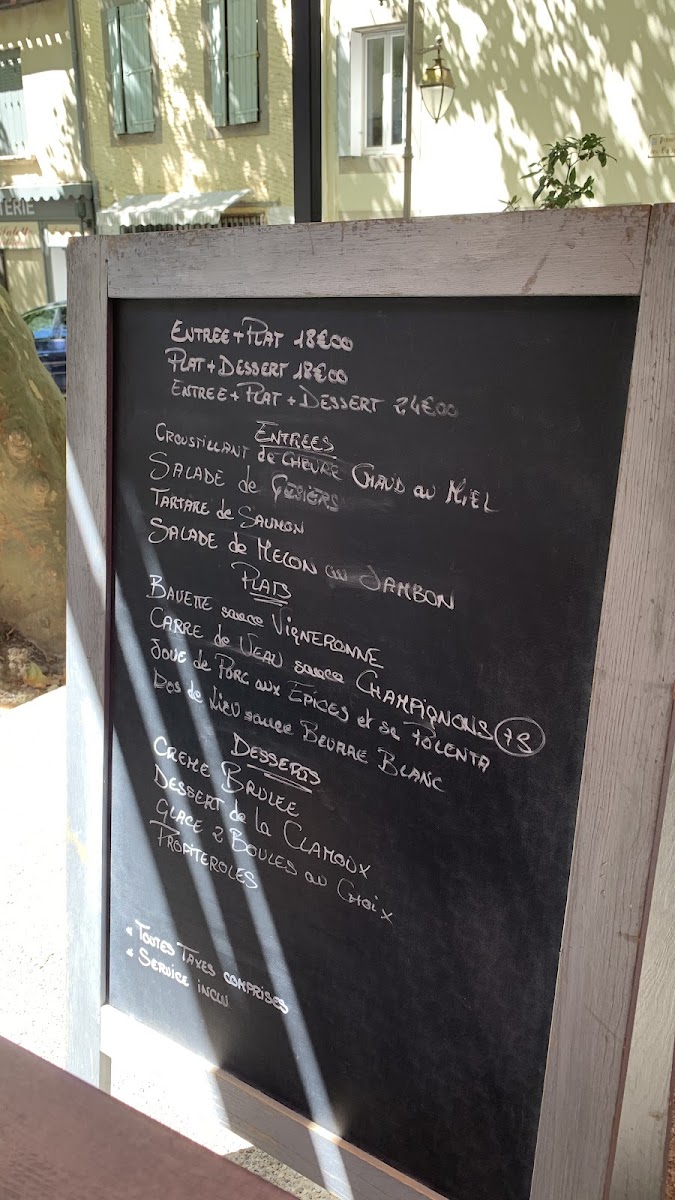 TERIE
ENTREE + PLAT 18€00
PLAT + DESSERT 18€00
ENTREE + PLAT + DESSERT 24€00
ENTREES
CROUSTILLANT de CHEVRE CHAUD au MIEL
SALADE de GESIERS
TARTARE de SAUMON
SALADE de MELON au JAMBON
PLATS
BAVETTE sauce VIGNERONNE
CARRE de VEAU sauce CHAMPIGNONS +3
JOUE de PORC aux EPICES et sa POLENTA
Dos de Lieu sauce BEURRE BLANC
DESSERTS
CREME BRULEE
DESSERT de la CLAMOUX
GLACE 2 BOULES au CHOIX
PROFITEROLES
* TOUTES TAXES COMPRISES
* SERVICE inclu